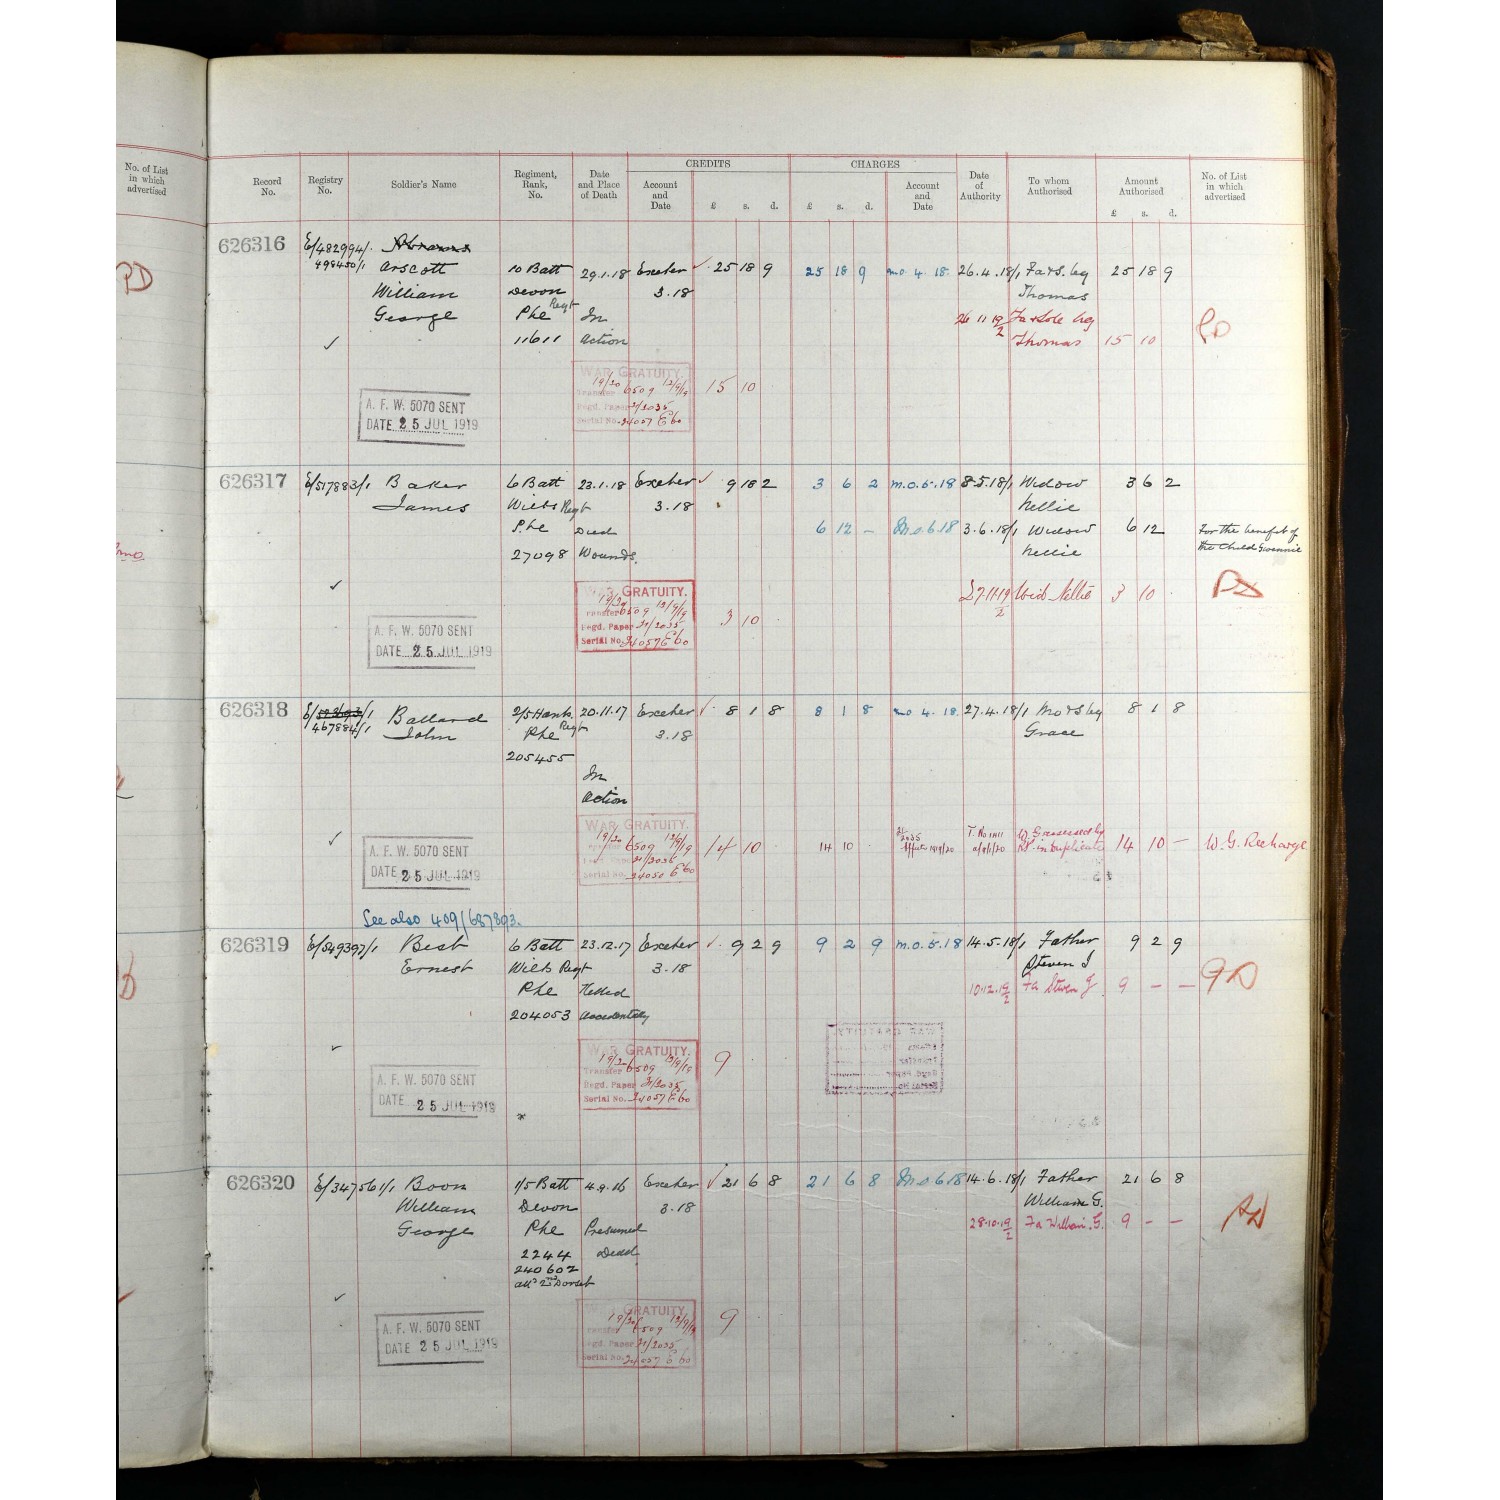 No. of List
in which
advertised
PD
Record
No.
Registry
No.
Soldier's Name
Regiment,
Rank,
No.
Date
and Place
of Death
CREDITS
Account
and
Date
£ s. d.
CHARGES
£ s. d.
Account
and
Date
Date
of
Authority
To whom
Authorised
Amount
Authorised
£ s. d.
No. of List
in which
advertised
626316 E/482994/1 Abrams
498450/1 Arscott 10 Batt 29.1.18 Exeter 25 18 9 25 18 9 mo 4.18 26.4.18/1 Fa & S. leg 25 18 9
William Devon 3.18 Thomas
George Pte Regt In 26 11 19/2 Fa & Sole leg
11611 Action Thomas 15 10
WAR GRATUITY.
19/20 6509 13/9/19 15 10
Transfer
Regd. Paper 21/2035
Serial No. 24057 E60
A. F. W. 5070 SENT
DATE 25 JUL 1919
626317 E/517883/1 Baker 6 Batt 23.1.18 Exeter 9 18 2 3 6 2 m.o.5.18 8.5.18/1 Widow 3 6 2
James Wilts Regt 3.18 Nellie
Pte Died 6 12 – Mo 6.18 3.6.18/1 Widow 6 12 For the benefit of
27098 Wounds. Nellie the Child Gwennie
27.11.19/2 Wid Nellie 3 10
WAR GRATUITY.
19/20
Transfer 6509 13/9/19 3 10
Regd. Paper 21/2035
Serial No. 24057 E60
A. F. W. 5070 SENT
DATE 25 JUL 1919
626318 Ballard 2/5 Hants. 20.11.17 Exeter 8 1 8 8 1 8 mo 4.18. 27.4.18/1 Mo & S leg 8 1 8
467884/1 John Pte Regt 3.18 Grace
205455
In
Action
WAR GRATUITY.
19/20 6509 13/9/19 14 10 14 10 14 10 – W. G. Recharge
in Duplicate
A. F. W. 5070 SENT
DATE 25 JUL 1919
See also 409/687893.
626319 E/549397/1 Best 6 Batt 23.12.17 Exeter 9 2 9 9 2 9 m.o.5.18 14.5.18/1 Father 9 2 9
Ernest Wilts Regt 3.18 Steven J
Pte Killed 10.12.19/2 Fa Steven J. 9 – –
204053 Accidentally
WAR GRATUITY.
19/20
Transfer 6509 13/9/19 9
Regd. Paper 21/2035
Serial No. 24057 E60
A. F. W. 5070 SENT
DATE 25 JUL 1919
626320 E/347561/1 Boon 1/5 Batt 4.9.16 Exeter 21 6 8 21 6 8 Mo 6 18 14.6.18/1 Father 21 6 8
William Devon 3.18 William G.
George Pte Presumed 28.10.19/2 Fa William. G. 9 – –
2244 Dead
240602
att'd 2nd Dorset
WAR GRATUITY.
19/20 6509 13/9/19 9
Transfer
Regd. Paper 21/2035
Serial No. 24057 E60
A. F. W. 5070 SENT
DATE 25 JUL 1919